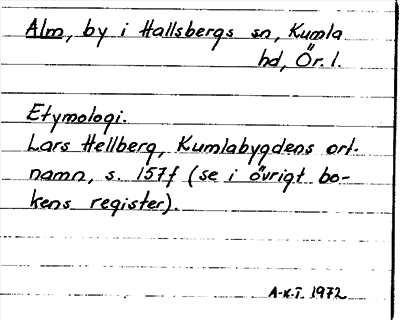 Alm, by i Hallsbergs sn, Kumla
hd, Ör. l.
Etymologi.
Lars Hellberg, Kumlabygdens ort-
namn, s. 157f (se i övrigt bo-
kens register).
A-K.T. 1972